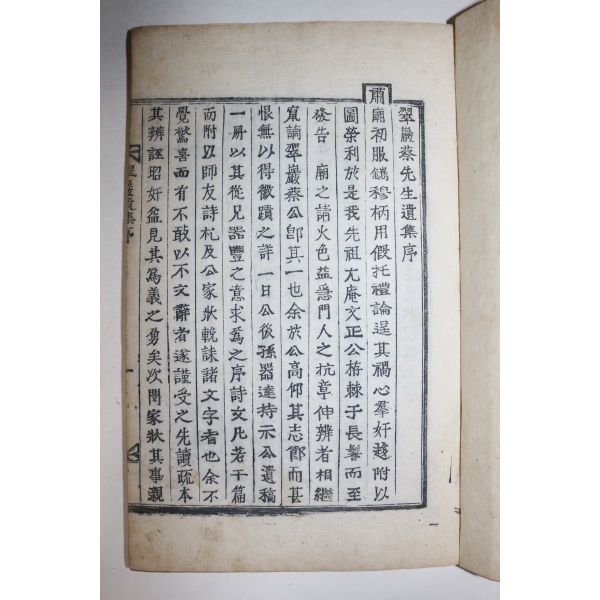 翠巖蔡先生遺集序
肅
廟初服鑴穆柄用假托禮論逞其禍心羣奸趍附以
圖榮利於是我先祖尤庵文正公栫棘于長鬐而至
發告 廟之請火色益急門人之抗章伸辨者相繼
竄謫翠巖蔡公卽其一也余於公高仰其志節而甚
恨無以得徵蹟之詳一日公後孫器達持示公遺稿
一冊以其從兄器豐之意求爲之序詩文凡若干篇
而附以師友詩札及公家狀輓誄諸文字者也余不
覺驚喜而有不敢以不文辭者遂謹受之先讀疏本
其辨誣昭奸益見其爲義之勇矣次閱家狀其事親
翠巖遺集序
一